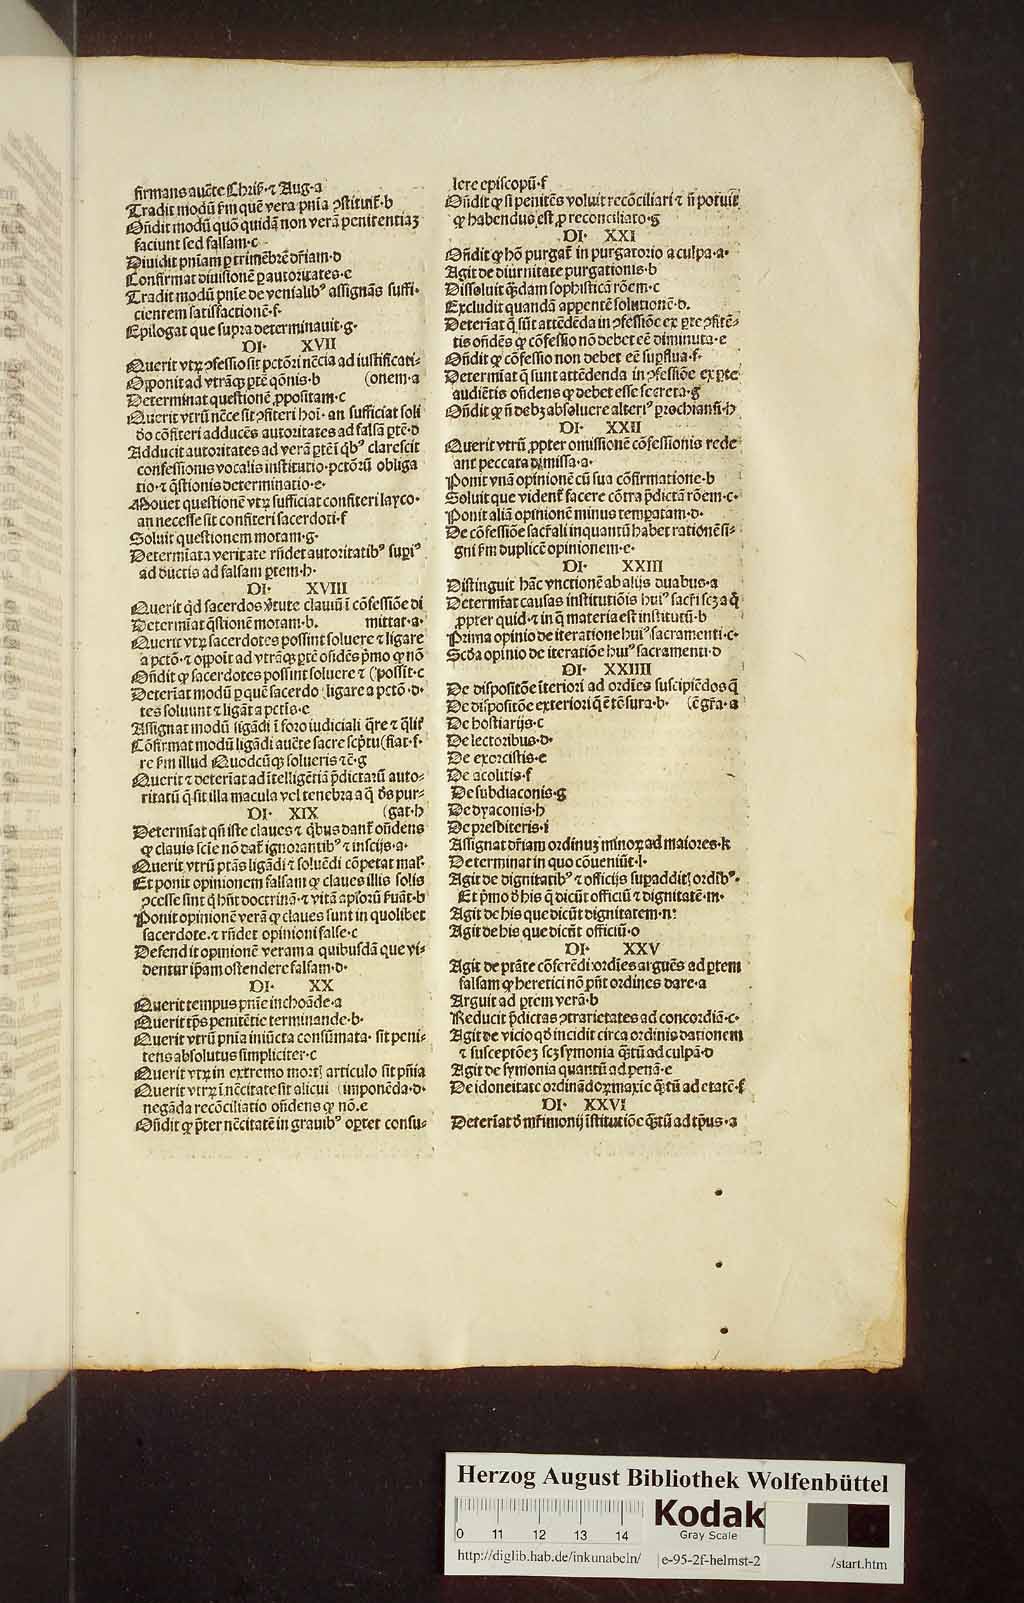 firmans auc̄te Chriſ̄·⁊ Aug·a
Tradit modū ẜm quē vera pn̄ia ꝯſtituit̄·b
Oñdit modū quō quidā non verā penitentiaꝫ
faciunt ſed falſam·c
Diuidit pn̄iam ꝑ trimēbrē dr̄iam·d
Confirmat diuiſionē ꝑ autoritates·e
Tradit modū pn̄ie de venialibꝰ aſſignās ſuffi-
cientem ſatiſfactionē·f·
Epilogat que ſupra determinauit·g·
DI· XVII
Querit vtꝝ ꝯfeſſio ſit pctōri nēcia ad iuſtificati-
Opponit ad vtrāqꝫ ꝑtē qōnis·b (onem·a
Determinat queſtionē ꝓpoſitam·c
Querit vtrū nēce ſit ꝯfiteri hoī· an ſufficiat ſoli
do cōfiteri adducēs autoritates ad falſā ꝑtē·d
Adducit autoritates ad verā ꝑtē ī qbꝰ clareſcit
confeſſionis vocalis inſtitutio·pctōrū obliga
tio·⁊ q̄ſtionis determinatio·e·
Mouet queſtionē vtꝝ ſufficiat confiteri layco·
an neceſſe ſit confiteri ſacerdoti·f
Soluit queſtionem motam·g·
Determīata veritate rn̄det autoritatibꝰ ſupiꝰ
ad ductis ad falſam ꝑtem·h·
DI· XVIII
Querit qd ſacerdos v̄tute clauiū ī cōfeſſiōe di
Determīat q̄ſtionē motam·b. mittat·a·
Querit vtꝝ ſacerdotes poſſint ſoluere ⁊ ligare
a pctō·⁊ oppōit ad vtrāqꝫ ꝑtē oſidēs pͥmo ꝙ nō
Oñdit ꝙ ſacerdotes poſſint ſoluere ⁊ (poſſit·c
Deterīat modū ꝑ quē ſacerdo (ligare a pctō·d·
tes ſoluunt ⁊ ligāt a pctis·e
Aſſignat modū ligādi ī foro iudiciali q̄re ⁊ qͣlit̄
Cōfirmat modū ligādi auc̄te ſacre ſcpͥtu (fiat·f·
re ẜm illud Quodcūqꝫ ſolueris ⁊c̄·g
Querit ⁊ deterīat ad ītelligētiā p̄dictarū auto-
ritatū q̄ ſit illa macula vel tenebra a q̄ ds̄ pur-
DI· XIX (gat·h
Determīat qn̄ iſte claues ⁊ qbus dant̄ on̄dens
ꝙ clauis ſcīe nō dat̄ ignorantibꝰ ⁊ inſcijs·a·
Querit vtrū ptās ligādi ⁊ ſoluēdi cōpetat mal̄·
Et ponit opinionem falſam ꝙ claues illis ſolis
ꝯceſſe ſint q̄ hn̄t doctrinā·⁊ vitā apl̄orū ẜuāt·b
Ponit opinionē verā ꝙ claues ſunt in quolibet
ſacerdote·⁊ rn̄det opinioni falſe·c
Defendit opinionē veram a quibuſdā que vi-
dentur ip̄am oſtendere falſam·d·
DI· XX
Querit tempus pn̄ie inchoāde·a
Querit tp̄s penitētie terminande·b·
Querit vtrū pn̄ia iniūcta conſūmata· ſit peni-
tens abſolutus ſimpliciter·c
Querit vtꝝ in extremo mort̄ articulo ſit pn̄ia
Querit vtꝝ ī nēcitate ſit alicui (imponēda·d·
negāda recōciliatio oñdens ꝙ nō·e
Oñdit ꝙ p̄ter nēcitatē in grauibꝰ oꝑtet conſu-
lere epiſcopū·f
Oñdit ꝙ ſi penitēs voluit recōciliari ⁊ n̄ potuit
ꝙ habendus eſt ꝓ reconciliato·g
DI· XXI
Oñdit ꝙ hō purgat̄ in purgatorio a culpa·a·
Agit de diurnitate purgationis·b
Diſſoluit q̄dam ſophiſticā rōem·c
Excludit quandā apparentē ſolutionē·d·
Deterīat q̄ ſūt attēdēda in ꝯfeſſiōe ex ꝑte ꝯfitē-
tis oñdēs ꝙ cōfeſſio nō debet eē diminuta·e
Oñdit ꝙ cōfeſſio non debet eē ſuꝑflua·f·
Determīat q̄ ſunt attēdenda in ꝯfeſſiōe ex ꝑte
audiētis oñdens ꝙ debet eſſe ſecreta·g
Oñdit ꝙ n̄ debꝫ abſoluere alteriꝰ ꝑrochianū·h
DI· XXII
Querit vtrū ꝓpter omiſſionē cōfeſſionis rede
ant peccata dimiſſa·a·
Ponit vnā opinionē cū ſua cōfirmatione·b
Soluit que vident̄ facere cōtra p̄dictā rōem·c·
Ponit aliā opinionē minus temꝑatam·d·
De cōfeſſiōe ſacr̄ali inquantū habet rationē ſi-
gni ẜm duplicē opinionem·e·
DI· XXIII
Diſtinguit hāc vnctionē ab alijs duabus·a
Determīat cauſas inſtitutiōis huiꝰ ſacr̄i ſcꝫ a q̄
ꝓpter quid·⁊ in q̄ materia eſt inſtitutū·b
Prima opinio de iteratione huiꝰ ſacramenti·c·
Scd̄a opinio de iteratiōe huiꝰ ſacramenti·d
DI· XXIIII
De diſpoſitōe īteriori ad ordīes ſuſcipiēdos q̄
De diſpoſitōe exteriori q̄ ē tēſura·b· (ē gr̄a·a
De hoſtiarijs·c
De lectoribus·d·
De exorciſtis·e
De acolitis·f
De ſubdiaconis·g
De dyaconis·h
De preſbiteris·i
Aſſignat dr̄iam ordinuꝫ minoꝝ ad maiores·k
Determinat in quo cōueniūt·l·
Agit de dignitatibꝰ ⁊ officijs ſupaddit̄ ordībꝰ·
Et pͥmo d̄ his q̄ dicūt officiū ⁊ dignitatē·m·
Agit de his que dicūt dignitatem·n·
Agit de his que dicūt officiū·o
DI· XXV
Agit de ptāte cōferēdi ordīes arguēs ad ꝑtem
falſam ꝙ heretici nō pn̄t ordines dare·a
Arguit ad ꝑtem verā·b
Reducit p̄dictas ꝯtrarietates ad concordiā·c·
Agit de vicio qd̄ incidit circa ordinis dationem
⁊ ſuſceptōeꝫ ſcꝫ ſymonia q̄tū ad culpā·d
Agit de ſymonia quantū ad penā·e
De idoneitate ordinādoꝝ maxīe q̄tū ad etatē·f
DI· XXVI
Deterīat d̄ mr̄imonij īſtitutiōe q̄tū ad tp̄us·a
Herzog August Bibliothek Wolfenbüttel
Kodak
Gray Scale
0 11 12 13 14
http://diglib.hab.de/inkunabeln/ e-95-2f-helmst-2 /start.htm